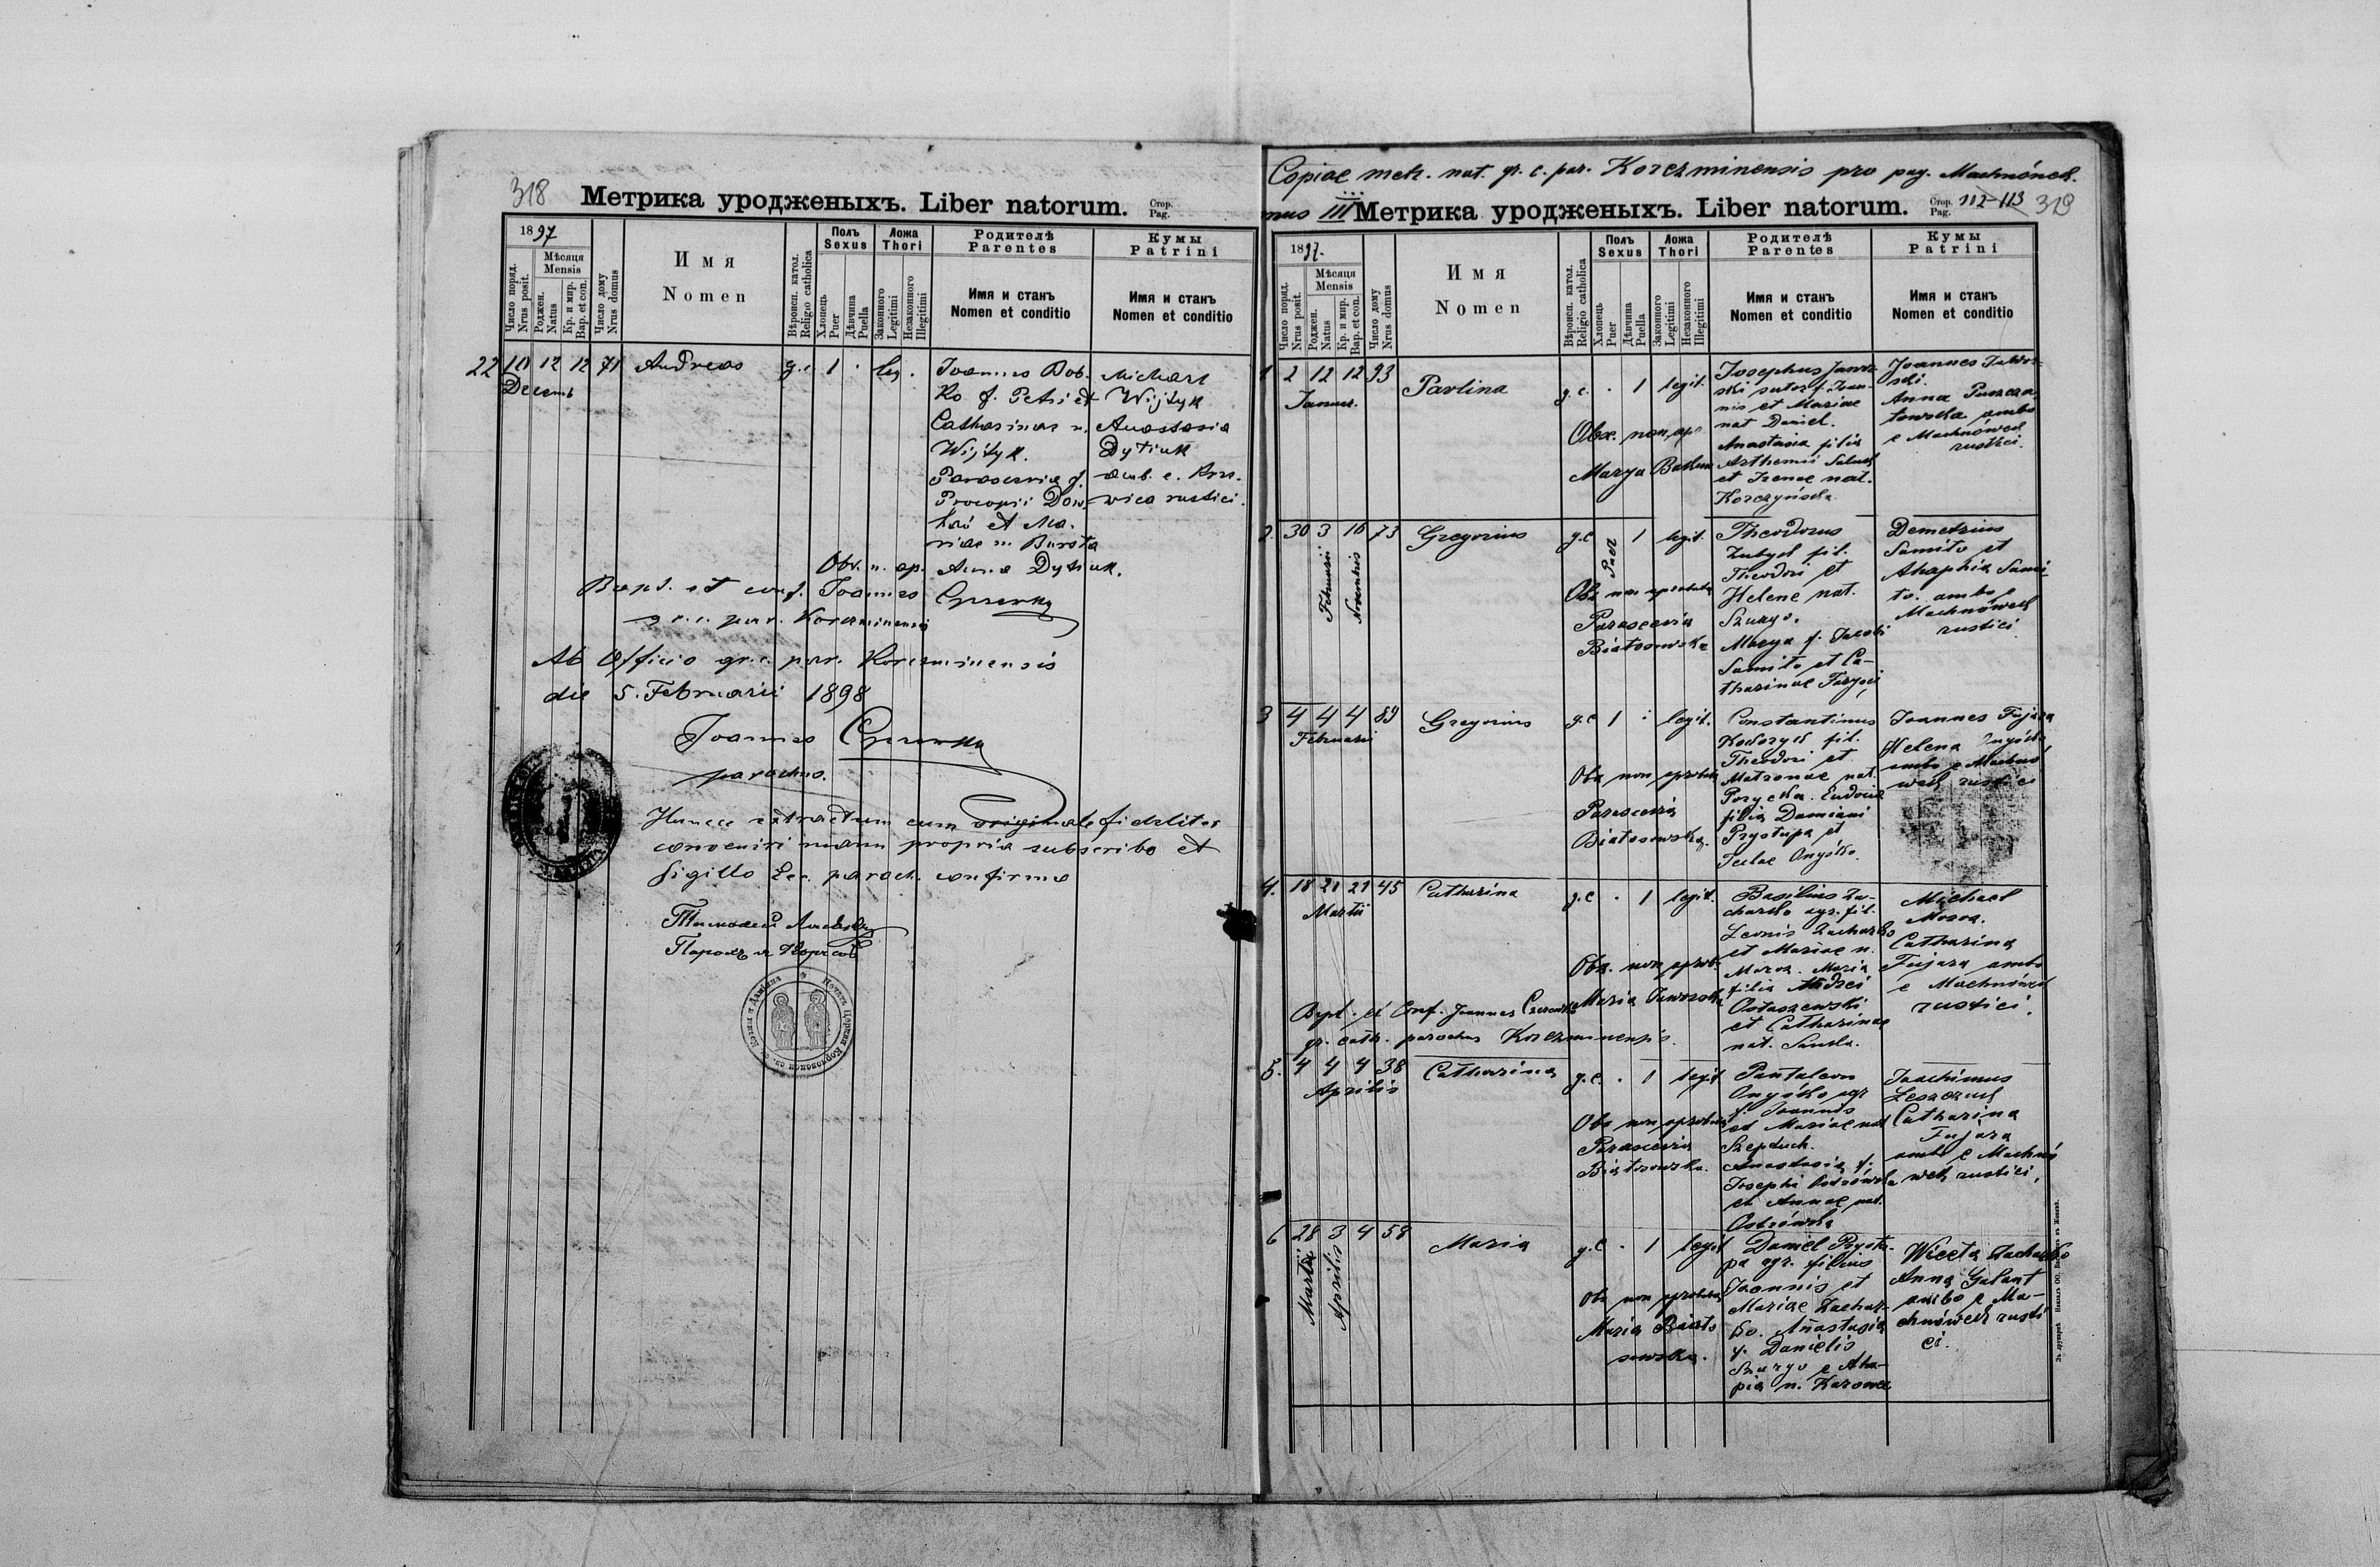 318
Метрика уродженыхъ. Liber natorum.
Стор.
Pag.
1897
Число поряд.
Nrus posit.
Мѣсяця
Mensis
Рожден.
Natus
Кр. и мир.
Bap. et con.
Число дому
Nrus domus
Имя
Nomen
Вѣроисп. катол.
Religio catholica
Полъ
Sexus
Хлопець
Puer
Дѣвчина
Puella
Ложа
Thori
Законного
Legitimi
Незаконного
Illegitimi
Родителѣ
Parentes
Имя и станъ
Nomen et conditio
Кумы
Patrini
Имя и станъ
Nomen et conditio
22 10 12 12 71 Andreas g.c 1 . leg.
Decemb
Joannes Bob-
ko f. Petri et
Catharinae n.
Wijtyk.
Parascevia f.
Procopii Dow
hań et Ma-
riae n. Bursta
Michael
Wijtyk
Anastasia
Dytiuk
amb. e.
wica rustici.
Obs. n. ap. Anna Dytiuk.
Bapt. et conf. Joannes
gr. c. par. Korczminensis
Ab Officio gr. c. par. Korczminensis
die 5. Februarii 1898
Joannes
parochus.
Hunce extractum cum originale fideliter
convenire manu propria subscribo et
sigillo Ecc. paroch. confirmo
Copiae metr. nat. gr. c. par. Korczminensis pro pag. Machnówek.
319
Метрика уродженыхъ. Liber natorum.
Стор.
Pag.
112-113
1897.
Число поряд.
Nrus posit.
Мѣсяця
Mensis
Рожден.
Natus
Кр. и мир.
Bap. et con.
Число дому
Nrus domus
Имя
Nomen
Вѣроисп. катол.
Religio catholica
Полъ
Sexus
Хлопець
Puer
Дѣвчина
Puella
Ложа
Thori
Законного
Legitimi
Незаконного
Illegitimi
Родителѣ
Parentes
Имя и станъ
Nomen et conditio
Кумы
Patrini
Имя и станъ
Nomen et conditio
1 2 12 12 93 Pavlina g.c. . 1 legit.
Januar.
Obs. non ap.
Marya
Josephus Jawor-
ski sutor f. Joan-
nis et Mariae
nat Daniel.
Anastasia filia
Arthemii
et Irenae nat.
Korczyńska
Joannes Jawor-
ski.
Anna
ambo
e Machnówek
rustici.
2. 30 3 16 73 Gregorius g.c 1 legit.
Februarii
Novembris
Puer
Obs non aprobata
Parascevia
Białosowska
Theodorus
fil.
Theodori et
Helene nat.
Szurgo.
Marya f. Jacobi
Samito et Ca-
tharinae
Demetrius
Samito et
Ahaphia Sami-
to. ambo e
Machnówek
rustici
3 4 4 4 89 Gregorius g.c 1 : legit.
Februarii
Obs non aprobata
Parascevia
Białosowska.
Constantinus
fil.
Theodori et
Matronae nat.
Eudocia
filia Damiani
Przystupa et
Teclae Onyśko.
Joannes Fujara
Helena
ambo e Machnó
wek rustici
4. 18 21 21 45 Catharina g.c . 1 legit.
Martii
Obs. non aprob.
Maria Jaworska
Basilius Za-
charko agr. fil.
Leonis Zacharko
et Mariae n.
Maria
filia Andrei
Ostaszewski
et Catharinae
nat.
Michael
Catharina
Fujara ambo
e Machnówek
rustici.
Bapt. et Conf. Joannes
gr. cath. parochus Korczminensis.
5. 4 4 4 38 Catharina g.c. . 1 legit
Aprilis
Obs non aprobata
Parascevia
Białosowska.
Pantaleon
Onyśko agr
f. Joannis
et Mariae nat
Szepduch.
Anastasia f.
Josephi
et Annae nat.
Ostrówska
Joachimus
Leszczuk
Catharina
Fujara
ambo e Machnó
wek rustici.
6 28 3 4 58 Maria g.c . 1 legit
Martii
Aprilis
Obs non aprobata
Maria Biało
sowska.
Daniel Przystu-
pa agr. filius
Joannis et
Mariae Zachar-
ko. Anastasia
f. Danielis
Szurgo e Aha-
pia n.
Wiceta Zacharko
Anna Galant
ambo e Ma-
chnówek rusti
ci.